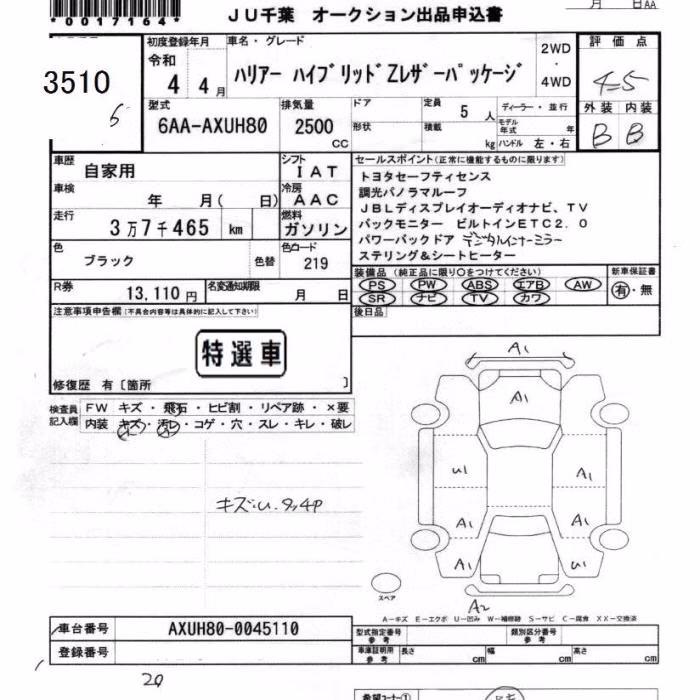 *00017164*
JU千葉 オークション出品申込書
月 日AA
3510
6
初度登録年月
令和
4 4月
車名・グレード
ハリアー ハイブリッドZレザーパッケージ
2WD
・
4WD
評価点
4.5
外装 内装
B B
型式
6AA-AXUH80
排気量
2500
CC
ドア
形状
定員
5 人
積載
kg
ディーラー・並行
モデル年式 年
ハンドル 左・右
車歴
自家用
シフト
IAT
車検
年 月( 日)
冷房
AAC
走行
3万7千465 km
燃料
ガソリン
色
ブラック
色替
色コード
219
R券
13,110円
名変通知期限
月 日
セールスポイント(正常に機能するものに限ります)
トヨタセーフティセンス
調光パノラマルーフ
JBLディスプレイオーディオナビ、TV
バックモニター ビルトインETC2.0
パワーバックドア デジタルインナーミラー
ステリング&シートヒーター
装備品 (純正品に限り○をつけてください)
PS PW ABS エアB AW
SR ナビ TV カワ
新車保証書
有・無
後日品
注意事項申告欄(不具合内容等は具体的に記入して下さい)
特選車
修復歴 有〔箇所 〕
検査員記入欄
FW キズ・飛石・ヒビ割・リペア跡・×要
内装 キズ・汚レ・コゲ・穴・スレ・キレ・破レ
キズ.U.
A1
A1
U1
A1
A1
A1
A1
U1
A2
スペア
A－キズ E－エクボ U－凹み W－補修跡 S－サビ C－腐食 XX－交換済
車台番号
AXUH80-0045110
登録番号
型式指定番号
参考
類別区分番号
参考
車庫証明用
参考
長さ cm
幅 cm
高さ cm
20
希望コーナー①